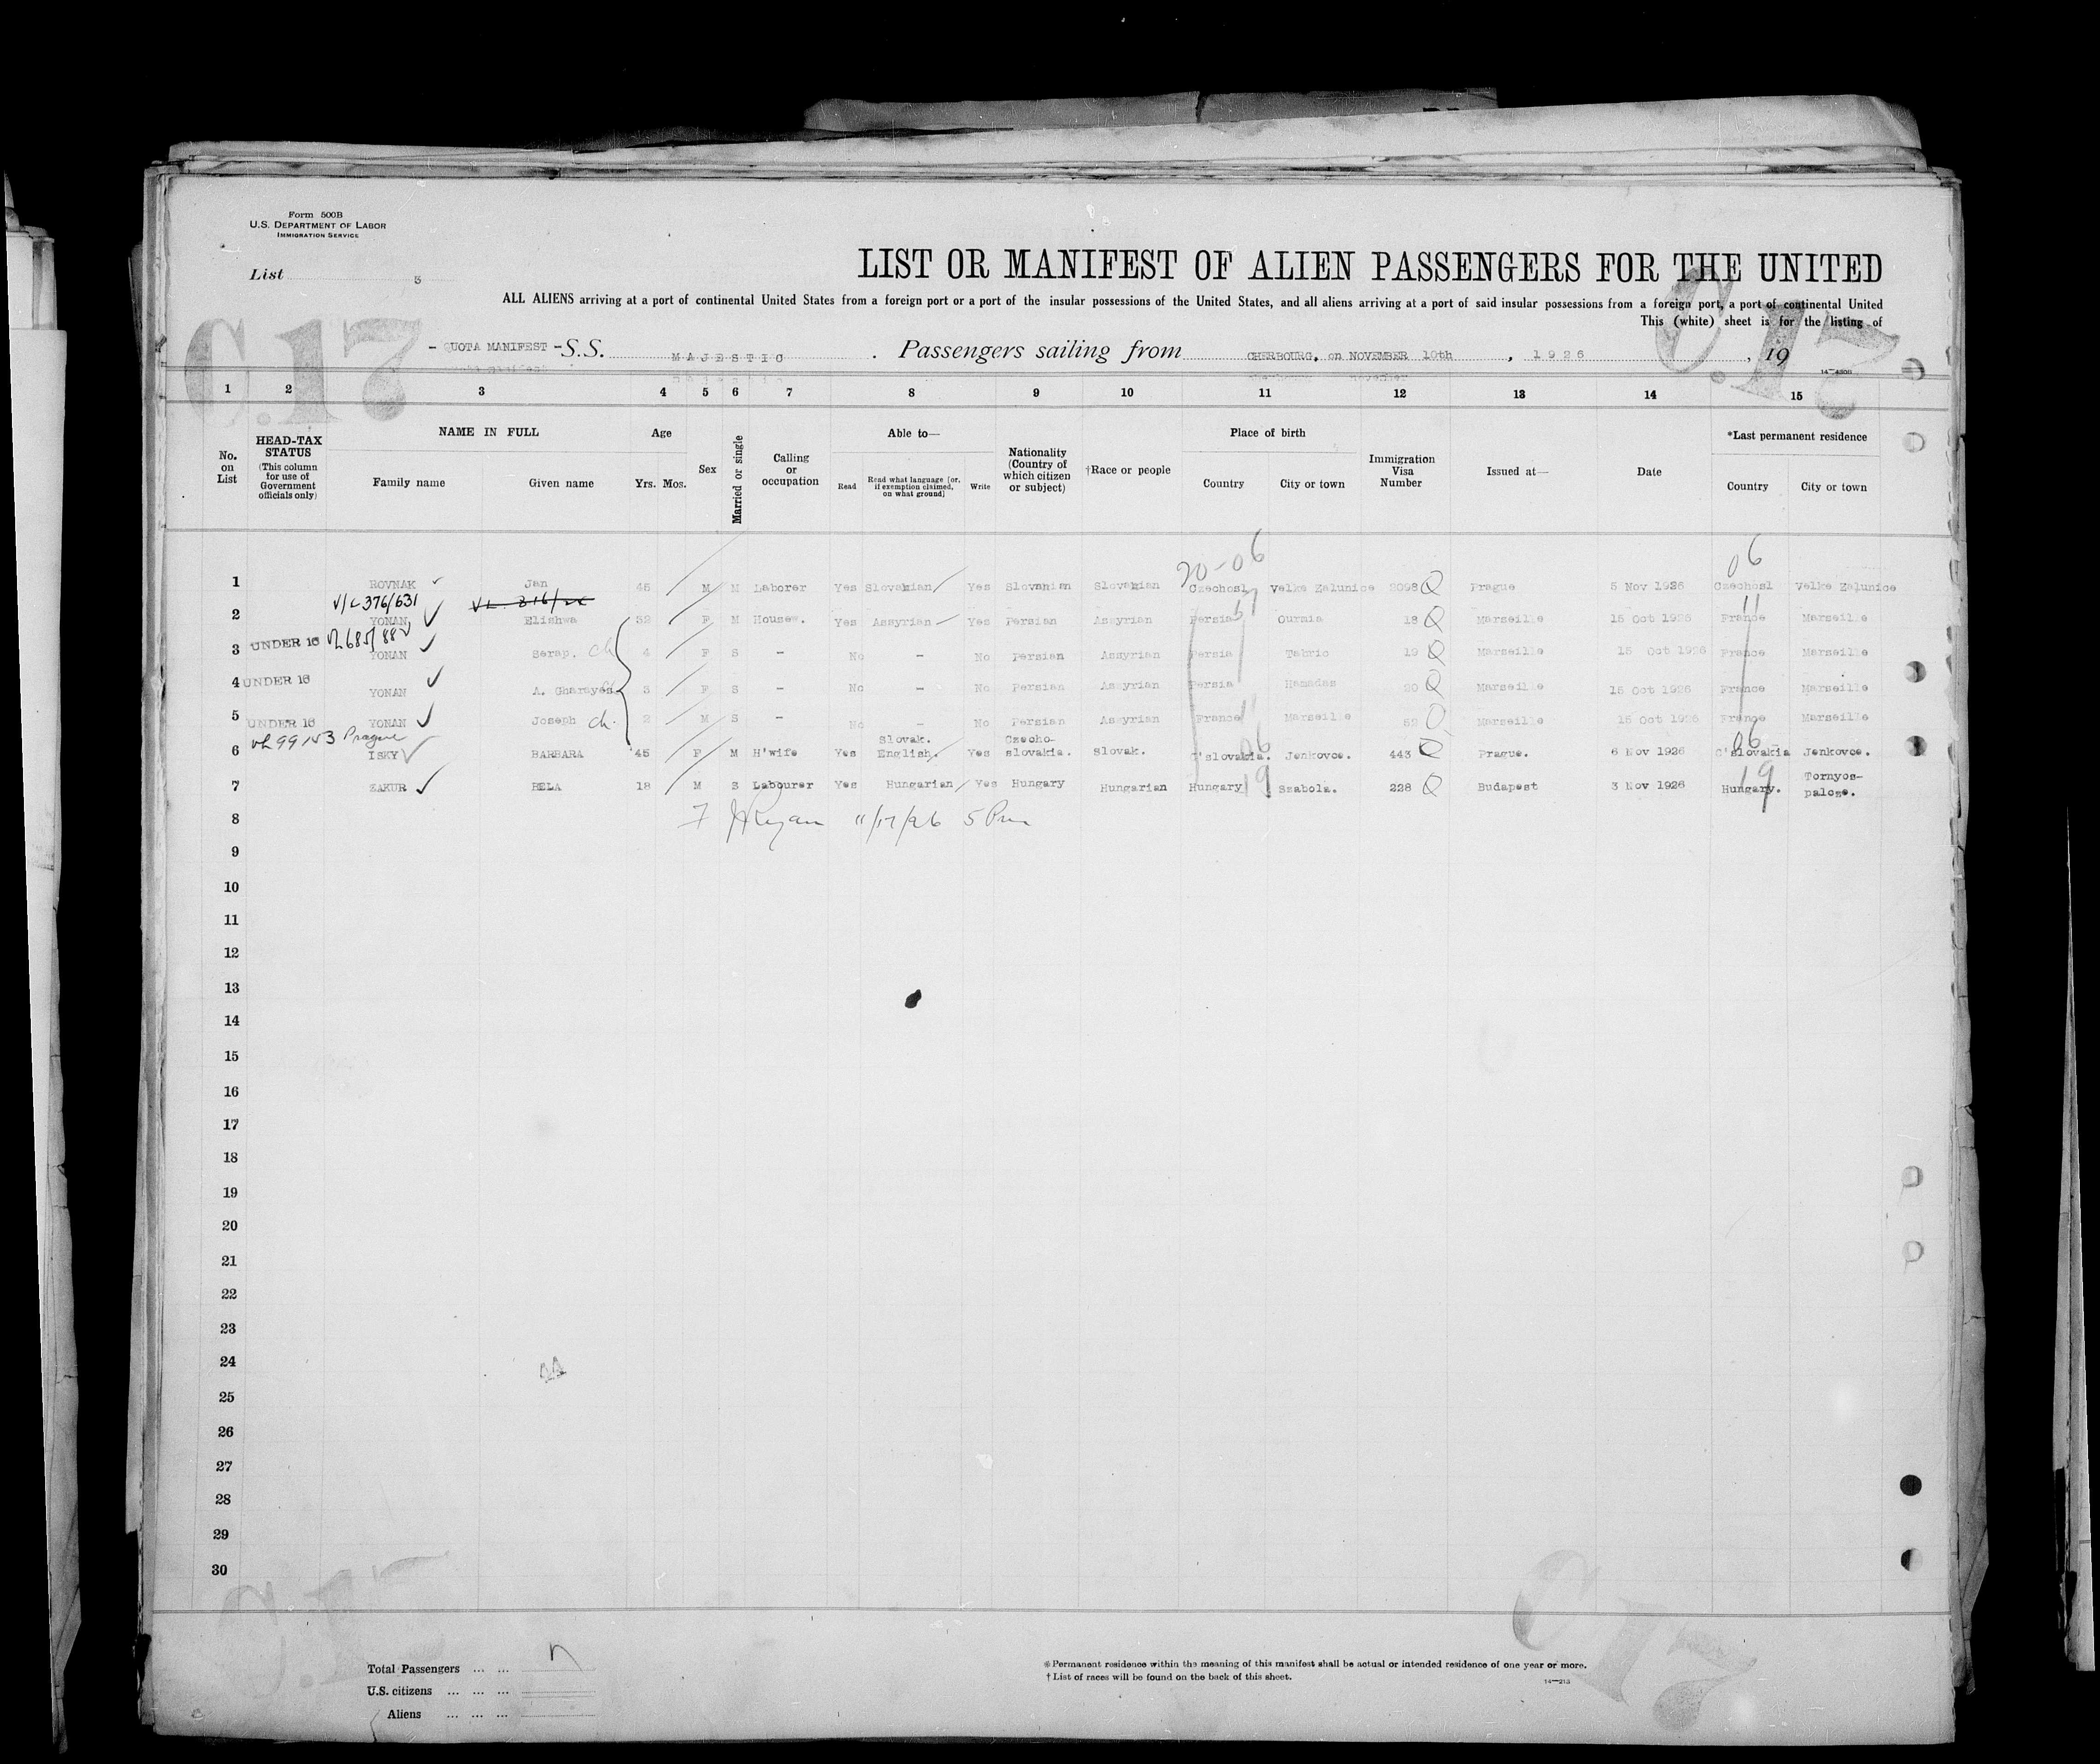 Form 500B
U.S. DEPARTMENT OF LABOR
IMMIGRATION SERVICE
List 3
LIST OR MANIFEST OF ALIEN PASSENGERS FOR THE UNITED
ALL ALIENS arriving at a port of continental United States from a foreign port or a port of the insular possessions of the United States, and all aliens arriving at a port of said insular possessions from a foreign port, a port of continental United
This (white) sheet is for the listing of
C.17 C.17
- QUOTA MANIFEST - S.S. MAJESTIC . Passengers sailing from CHERBOURG, on NOVEMBER 10th , 1926 , 19
1 2 3 4 5 6 7 8 9 10 11 12 13 14 15
No. on List
HEAD-TAX STATUS (This column for use of Government officials only)
NAME IN FULL
Family name Given name
Age
Yrs. Mos.
Sex
Married or single
Calling or occupation
Able to—
Read Read what language [or, if exemption claimed, on what ground] Write
Nationality (Country of which citizen or subject)
†Race or people
Place of birth
Country City or town
Immigration Visa Number
Issued at—
Date
*Last permanent residence
Country City or town
20-06 06
1 ROVNAK Jan 45 M M Laborer Yes Slovakian Yes Slovakian Slovakian Czechosl Velke Zalunice 2098 Q Prague 5 Nov 1926 Czechosl Velke Zalunice
V/L 376/631
2 YONAN Elishwa 32 F M Housew. Yes Assyrian Yes Persian Assyrian Persia Ourmia 18 Q Marseille 15 Oct 1926 France Marseille
3 UNDER 16 YONAN Serap. ch 4 F S - No - No Persian Assyrian Persia Tabric 19 Q Marseille 15 Oct 1926 France Marseille
4 UNDER 16 YONAN A. Gharayes 3 F S - No - No Persian Assyrian Persia Hamadan 20 Q Marseille 15 Oct 1926 France Marseille
5 UNDER 16 YONAN Joseph ch. 2 M S - No - No Persian Assyrian France Marseille 52 Q Marseille 15 Oct 1926 France Marseille
vl 99153 Prague
6 ISKY BARBARA 45 F M H'wife Yes Slovak. English. Yes Czecho-slovakia. Slovak. C'slovakia. Jenkovce. 443 Q Prague. 6 Nov 1926 C'slovakia Jenkovce.
06 06
7 ZAKUR BELA 18 M S Labourer Yes Hungarian Yes Hungary Hungarian Hungary Szabola. 228 Q Budapest 3 Nov 1926 Hungary. Tornyos-paloze.
19 19
8 7 Ryan 11/17/26 5 Pm
9
10
11
12
13
14
15
16
17
18
19
20
21
22
23
24
25
26
27
28
29
30
C.17 C.17
Total Passengers ... ...
U.S. citizens ... ... ...
Aliens ... ... ...
*Permanent residence within the meaning of this manifest shall be actual or intended residence of one year or more.
†List of races will be found on the back of this sheet.
14—213